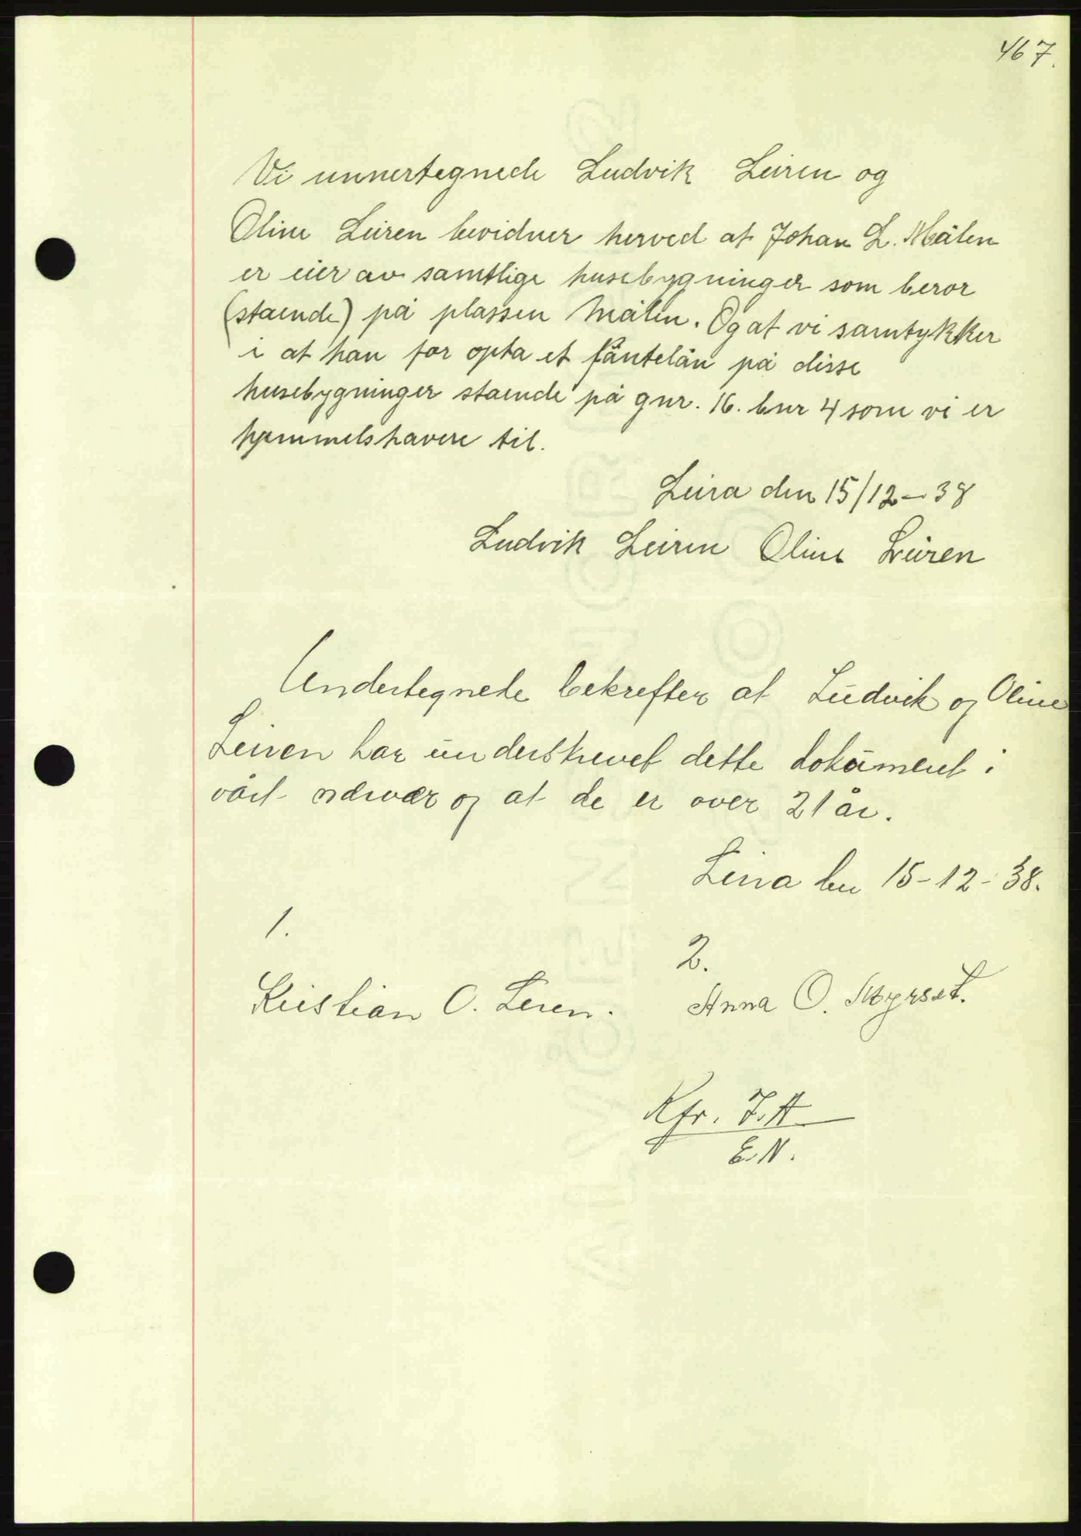 467.
Vi unnertegnede Ludvik Leiren og
Oline Leiren bevidner herved at Johan L. Målen
er eier av samtlige husebygninger som beror
(stående) på plassen Målen. Og at vi samtykker
i at han for opta et påntelån på disse
husebygninger stående på gnr. 16. bnr 4 som vi er
hjemmelshavere til.
Leira den 15/12-38
Ludvik Leiren Oline Leiren
Undertegnede bekrefter at Ludvik og Oline
Leiren har underskrevet dette dokument i
vårt nærvær og at de er over 21 år.
Leira den 15-12-38.
1.
2.
Kristian O. Leren. Anna O. Myrset.
Kfr. J.A
E.N.